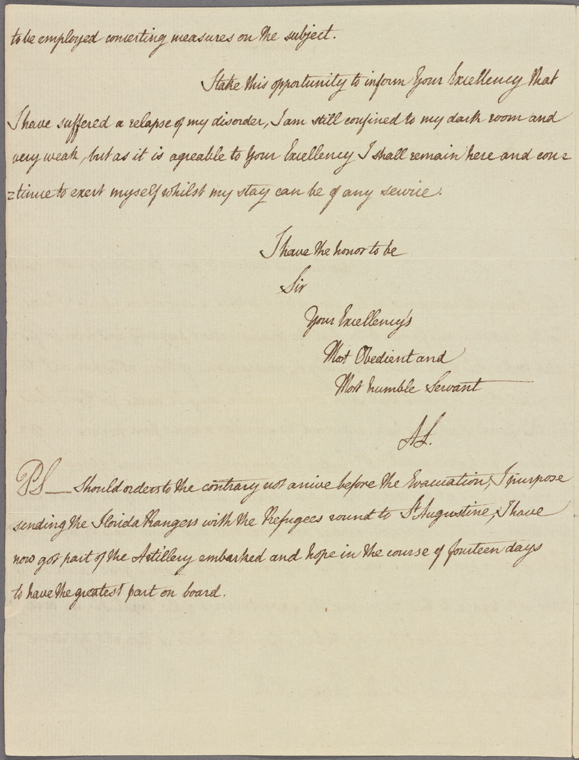 to be employed concerting measures on the subject.
I take this opportunity to inform Your Excellency that
I have suffered a relapse of my disorder, I am still confined to my dark room and
very weak, but as it is agreable to Your Excellency I shall remain here and con=
=tinue to exert myself whilst my stay can be of any service.
I have the honor to be
Sir
Your Excellency's
Most Obedient and
Most humble Servant
PS — Should orders to the contrary not arrive before the Evacuation, I purpose
sending the Florida Rangers with the Refugees round to St Augustine, I have
now got part of the Artillery embarked and hope in the course of fourteen days
to have the greatest part on board.